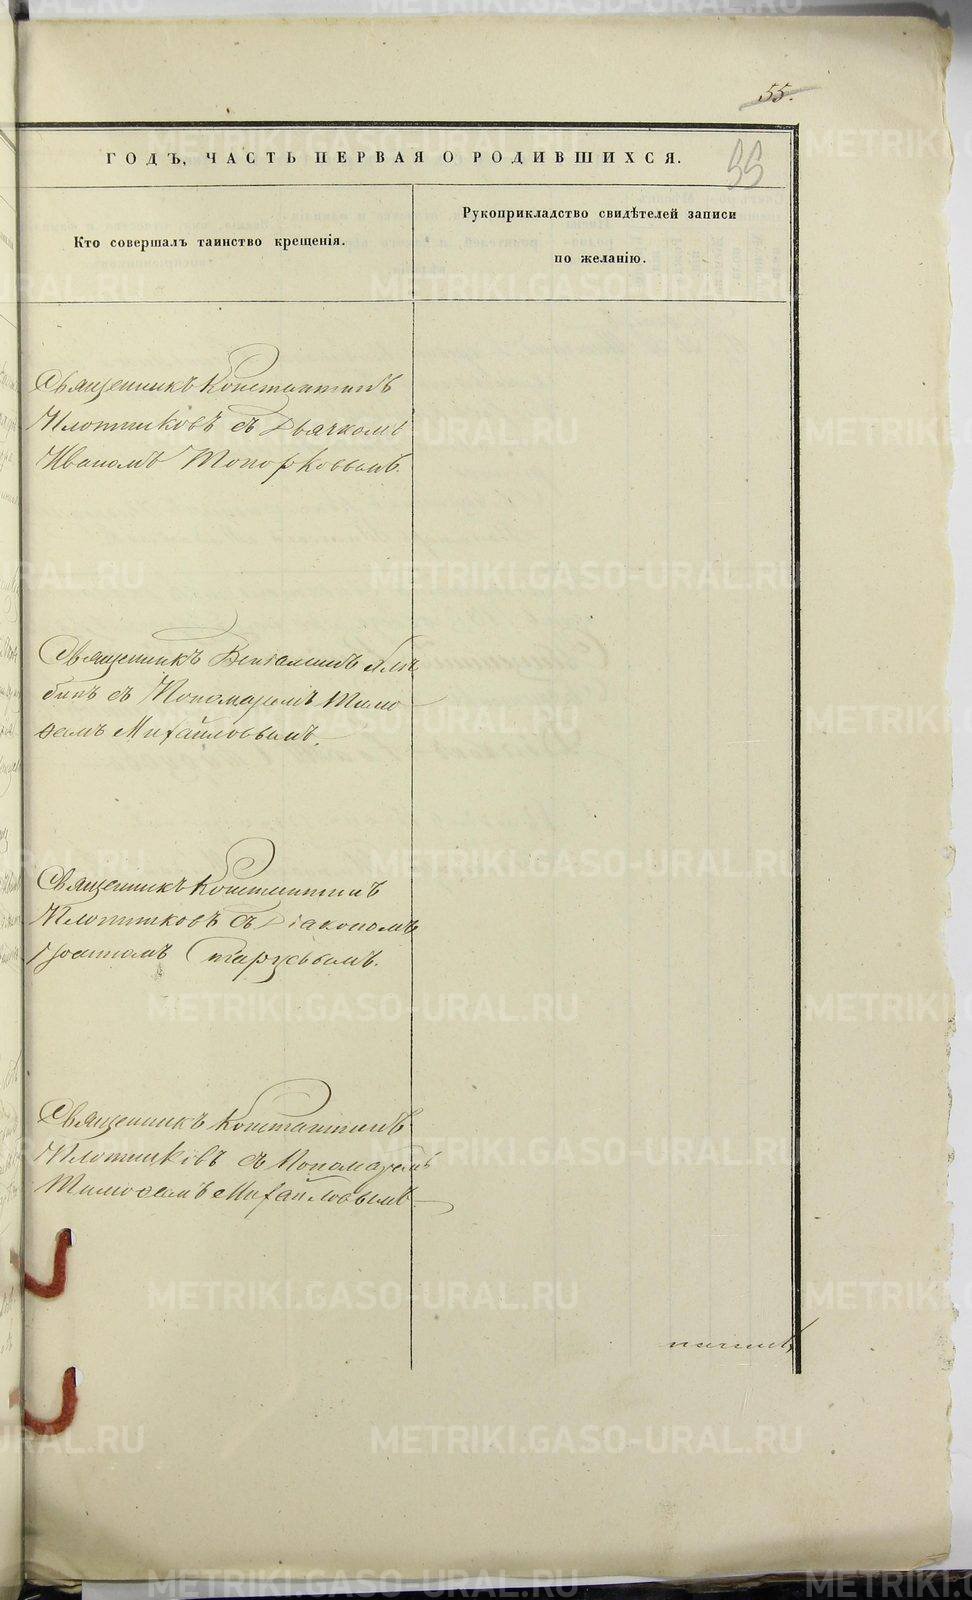 55.
ГОДЪ, ЧАСТЬ ПЕРВАЯ О РОДИВШИХСЯ.
55
Кто совершалъ таинство крещенія.
Рукоприкладство свидѣтелей записи
по желанію.
Священникъ Константинъ
Плотниковъ съ Дьячкомъ
Иваномъ Топорковымъ.
Священникъ Веніаминъ Аля
бинъ съ Пономаремъ Тимо
ѳеемъ Михайловымъ.
Священникъ Константинъ
Плотниковъ съ Діакономъ
Іоанномъ Старцевымъ.
Священникъ Константинъ
Плотниковъ съ Пономаремъ
Тимоѳеемъ Михайловымъ
METRIKI.GASO-URAL.RU